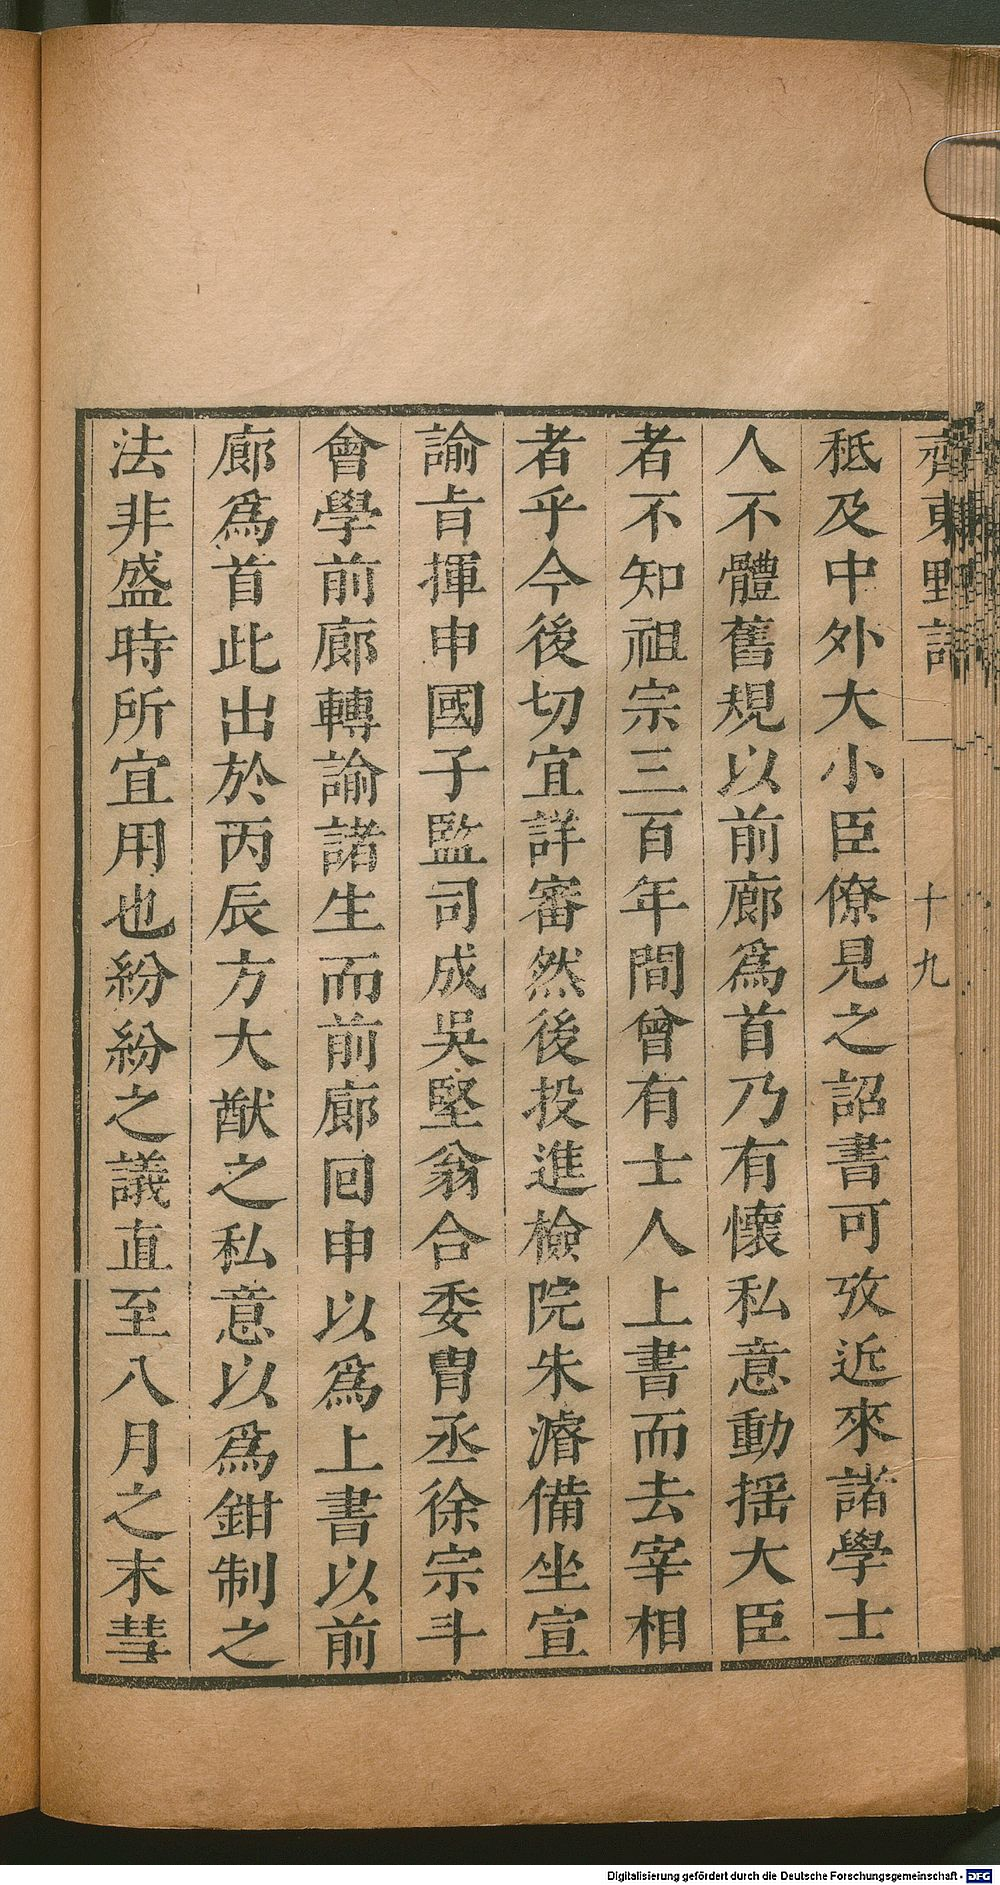 齊東野語 十九
秪及中外大小臣僚見之詔書可攷近來諸學士
人不體舊規以前廊爲首乃有懷私意動揺大臣
者不知祖宗三百年間曾有士人上書而去宰相
者乎今後切宜詳審然後投進檢院朱濬備坐宣
諭㫖揮申國子監司成吳堅翁合委胄丞徐宗斗
會學前廊轉諭諸生而前廊回申以爲上書以前
廊爲首此出於丙辰方大猷之私意以爲鉗制之
法非盛時所宜用也紛紛之議直至八月之末彗
Digitalisierung gefördert durch die Deutsche Forschungsgemeinschaft - DFG